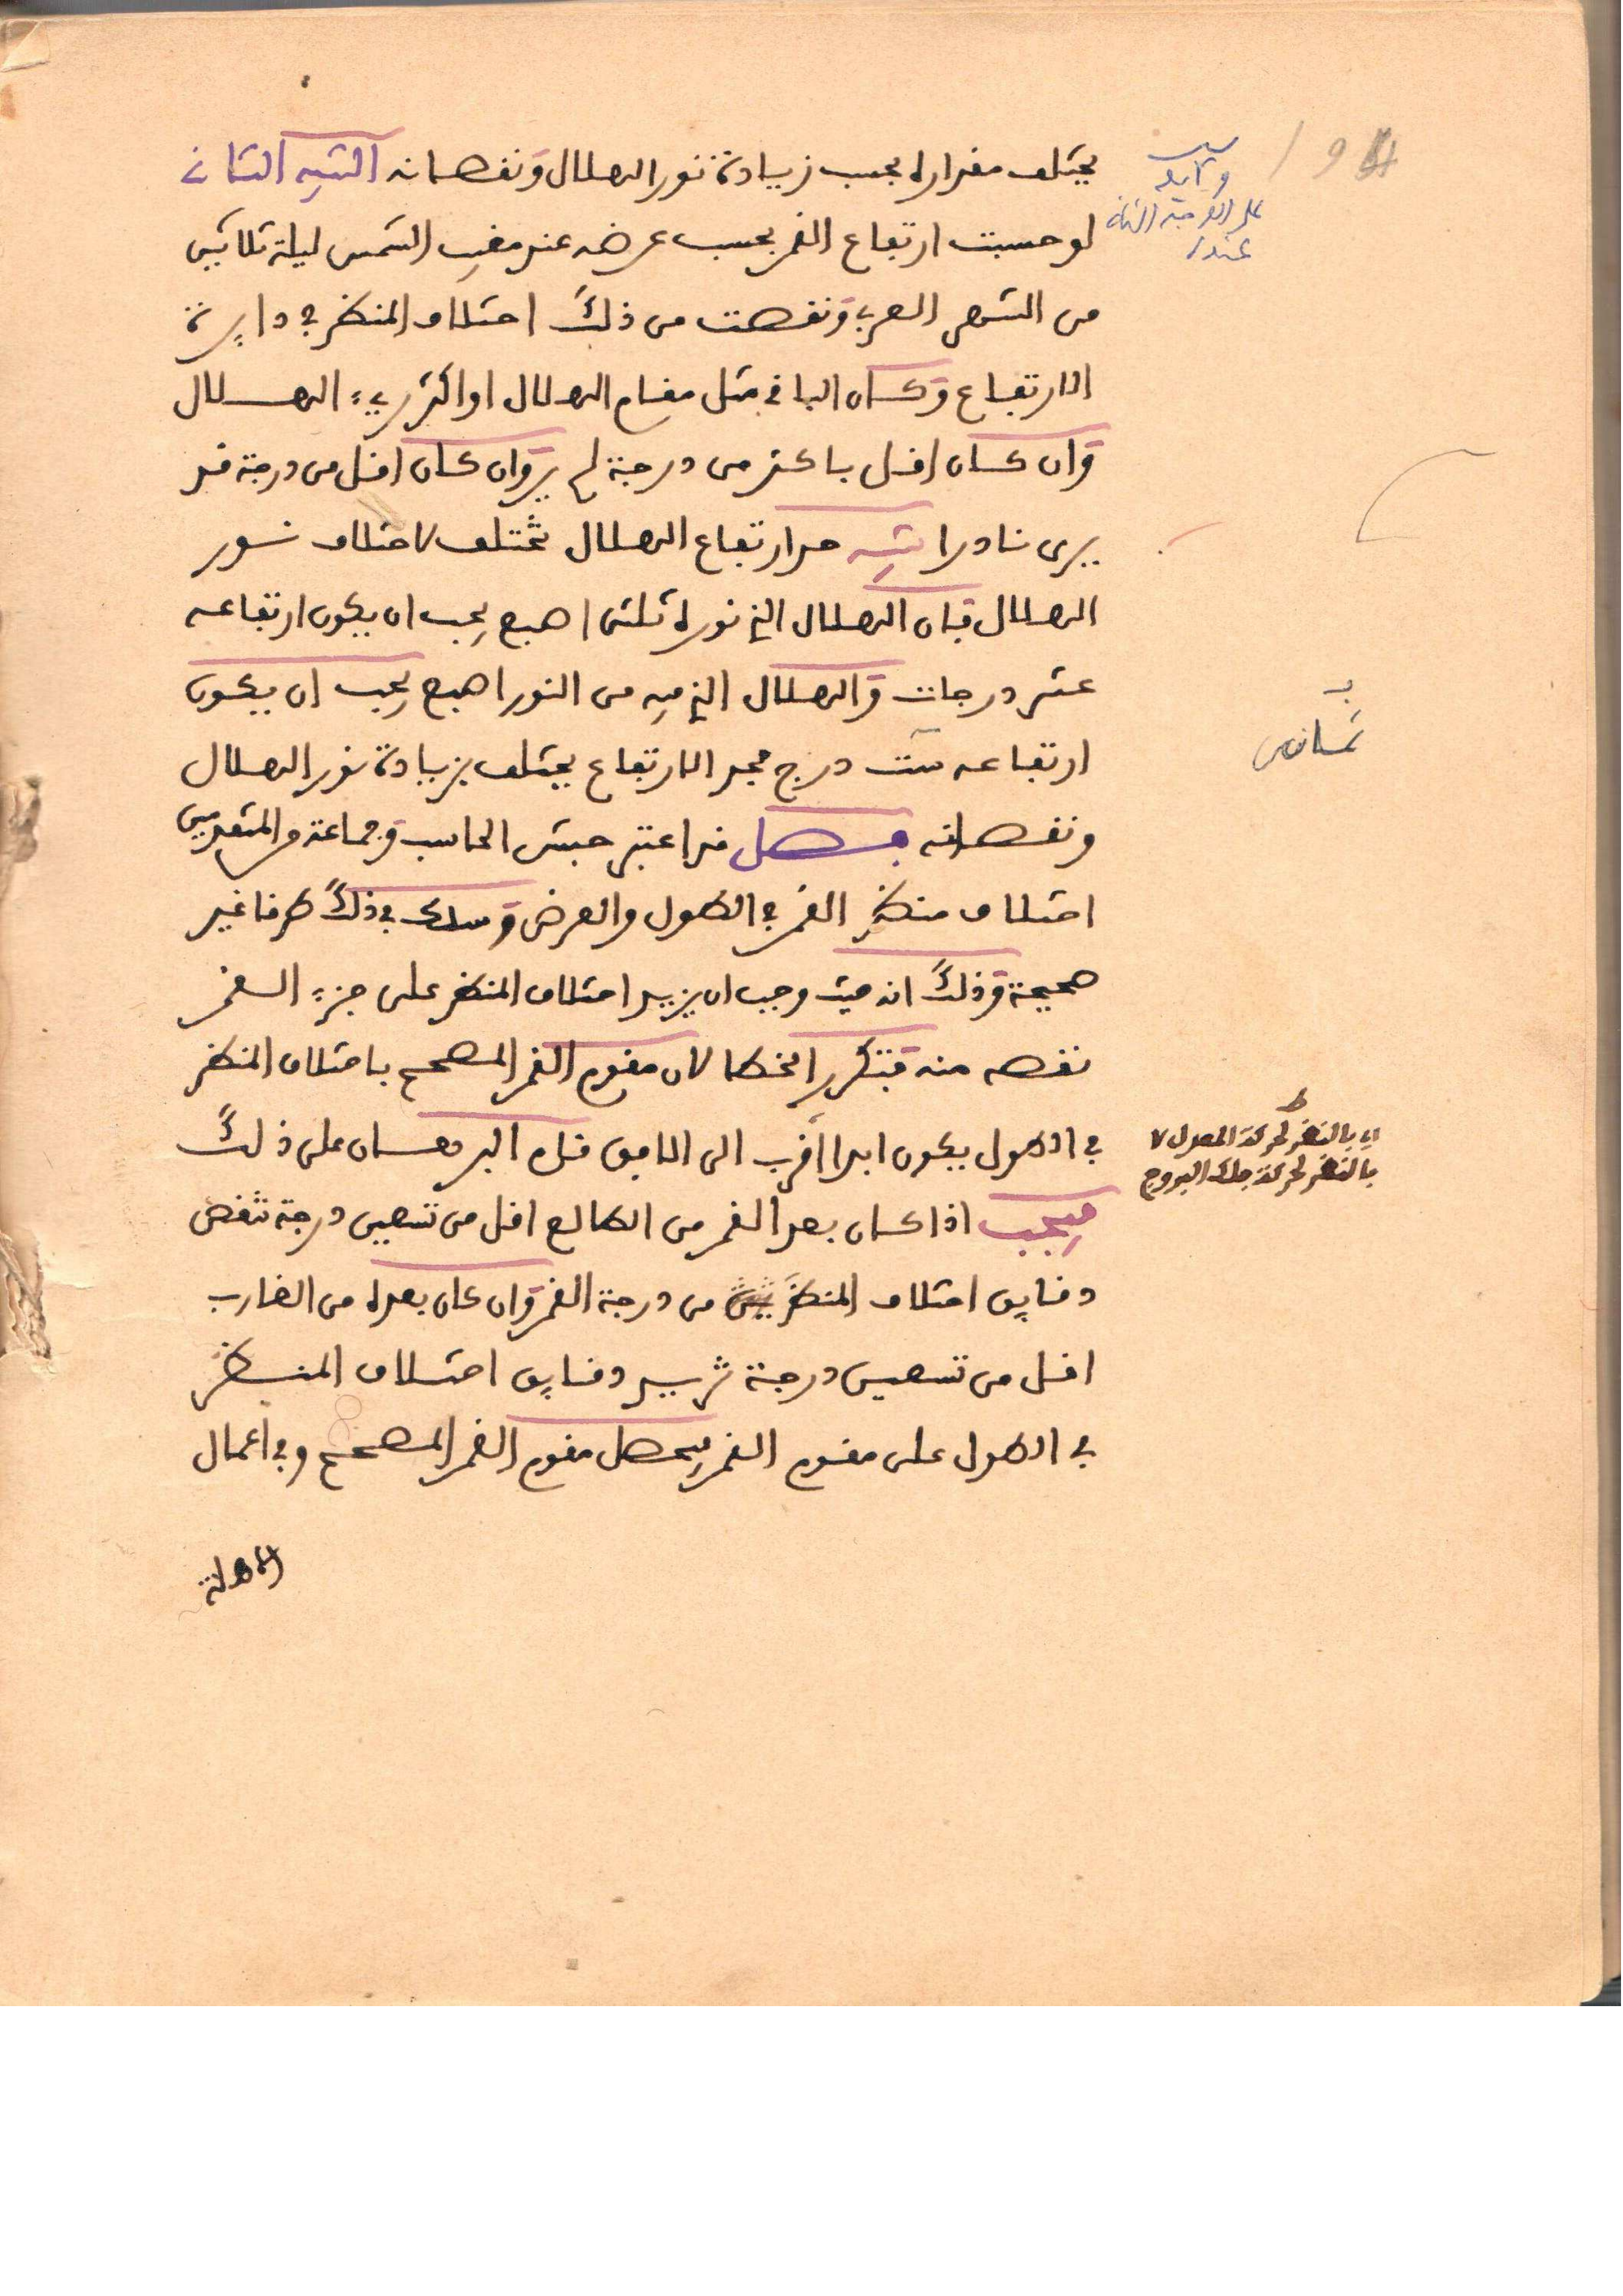 يختلف مقداره بحسب زيادة نور الهلال ونقصانه التنبيه الثاني
لو حسبت ارتفاع القمر بحسب عرضه عند مغيب الشمس ليلة ثلاثين
من الشهر العربي ونقصت من ذلك اختلاف المنظر في دايرة
الارتفاع وكان الباقي مثل مقام الهلال او اكثر ريء الهلال
وان كان اقل باكثر من درجة لم ير وان كان اقل من درجة قد
يرى نادرا تنبيه حد ارتفاع الهلال مختلف لاختلاف نور
الهلال فان الهلال الذي نوره ثلثي اصبع يجب ان يكون ارتفاعه
عشر درجات والهلال الذي فيه من النور اصبع يجب ان يكون
ارتفاعه ست درج فحد الارتفاع يختلف بزيادة نور الهلال
ونقصانه فصل قد اعتبر حبش الحاسب وجماعة من المتقدمين
اختلاف منظر القمر في الطول والعرض وسلك في ذلك طرقا غير
صحيحة وذلك انه حيث وجب ان يزيد اختلاف المنظر على جزء القمر
نقصه منه فيتكرر الخطا لان مقوم القمر المصحح باختلاف المنظر
في الطول يكون ابدا اقرب الى الافق قام البرهان على ذلك
فيجب اذا كان بعد القمر من الطالع اقل من تسعين درجة تنقص
دقايق اختلاف المنظر من درجة القمر وان كان بعده من الغارب
اقل من تسعين درجة تزيد دقايق اختلاف المنظر
في الطول على مقوم القمر فيحصل مقوم القمر المصحح وفي اعمال
اي بالنظر لحركة المعدل لا
بالنظر لحركة فلك البروج